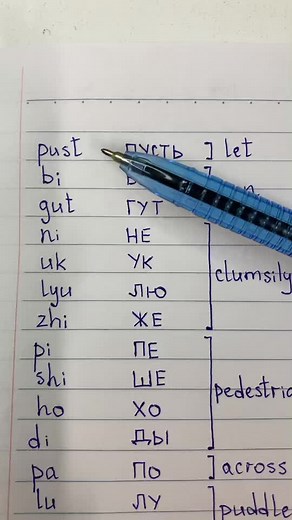 pust ПУСТЬ ] let
bi
gut ГУТ
ni НЕ
uk УК
lyu ЛЮ clumsily
zhi ЖЕ
pi ПЕ
shi ШЕ
ho ХО pedestria
di ДЫ
pa ПО ] across
lu ЛУ puddle